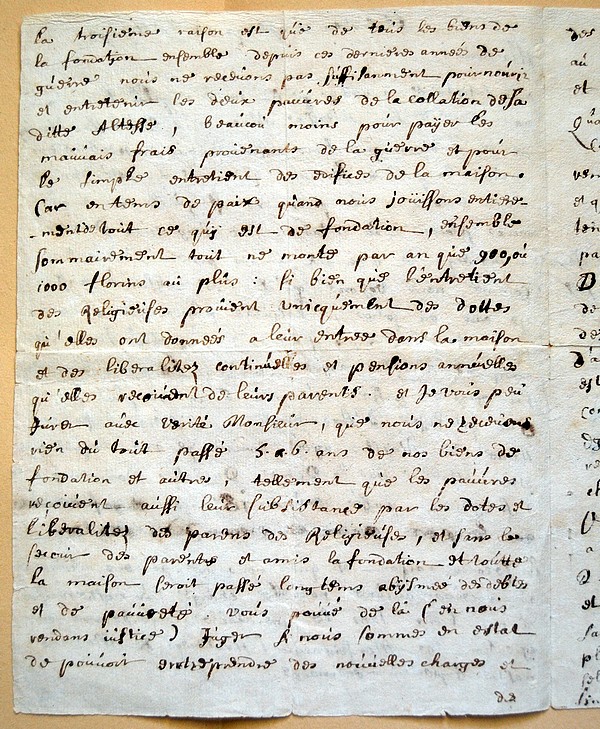 la troisiéme raison est que de tous les biens de
la fondation ensemble depuis ces dernieres années de
guerre nous ne recevons pas suffisanment pour nourir
et entretenir les deux pauvres de la collation de sa
ditte Altesse, beaucou moins pour payer les
mauvais frais provenants de la guerre et pour
le simple entretient des edifices de la maison.
Car en tems de paix quand nous joüissons entiere-
-ment de tout ce qui est de fondation, ensemble
sommairement tout ne monte par an que 900, où
1000 florins au plus : si bien que l'entretient
des Religieuses provient unicquement des dottes
qu'elles ont données a leur entrée dans la maison
et des liberalitez continuelles et pensions annuelles
qu'elles recoivent de leurs parents. et Je vous peu
Jurer avec verité Monsieur, que nous ne recevons
rien du tout passé 5. a 6. ans de nos biens de
fondation et autres, tellement que les pauvres
reçoivent aussi leur subsistançe par les dotes et
liberalitez des parens des Religieuses, et sans le
secour des parents et amis la fondation et toutte
la maison seroit passé longtems abysmée des debtes
et de pauvreté vous pouve de là (en nous
rendans justice) Juger si nous sommes en estat
de pouvoir entreprendre des nouvelles charges et
des
au
et